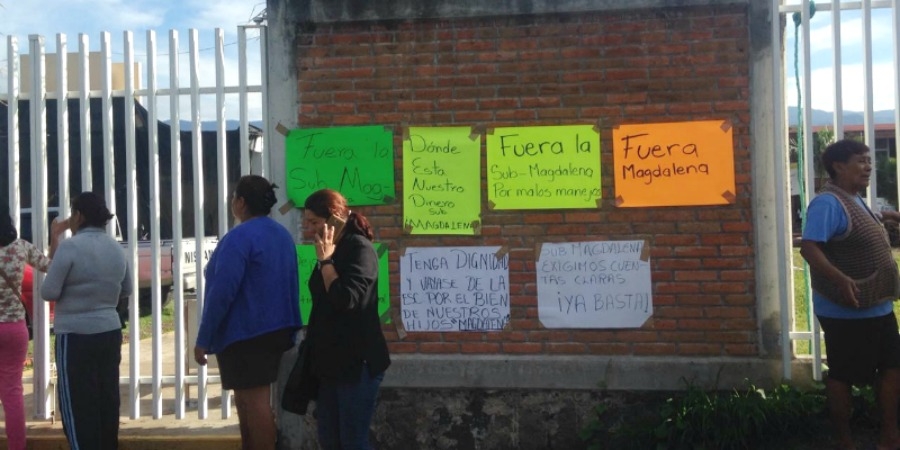 Fuera la
Sub Mag-
Dónde
Esta
Nuestro
Dinero
sub
MAGDALENA
Fuera la
Sub-Magdalena
Por malos manejos
Fuera
Magdalena
TENGA DIGNIDAD
Y VAYASE DE LA
ESC. POR EL BIEN
DE NUESTROS
HIJOS "MAGDALENA"
SUB MAGDALENA
EXIGIMOS CUEN-
TAS CLARAS
¡YA BASTA!
NISSAN